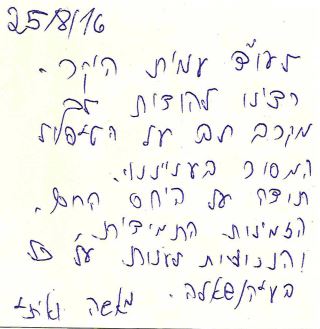 25/8/16
לעו"ד עמית היקר.
רצינו להודות לך
מקרב לב על הטיפול
המסור בענייננו.
תודה על היחס החם,
הזמינות התמידית,
והנכונות לענות על כל
בעיה/שאלה. משה